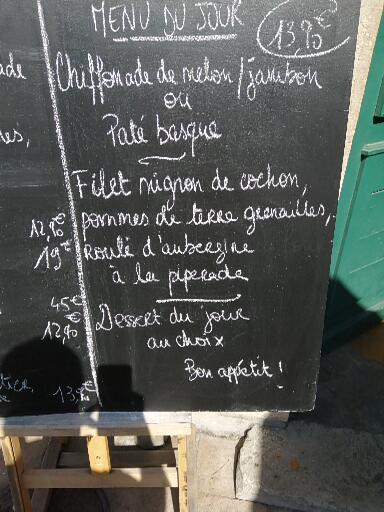 MENU DU JOUR
13,90€
Chiffonade de melon / jambon
ou
Paté basque
Filet mignon de cochon,
pommes de terre grenailles,
Roulé d'aubergine
à la piperade
Dessert du jour
au choix
Bon appétit !
ade
es,
12,90€
19€
45€
12,90€